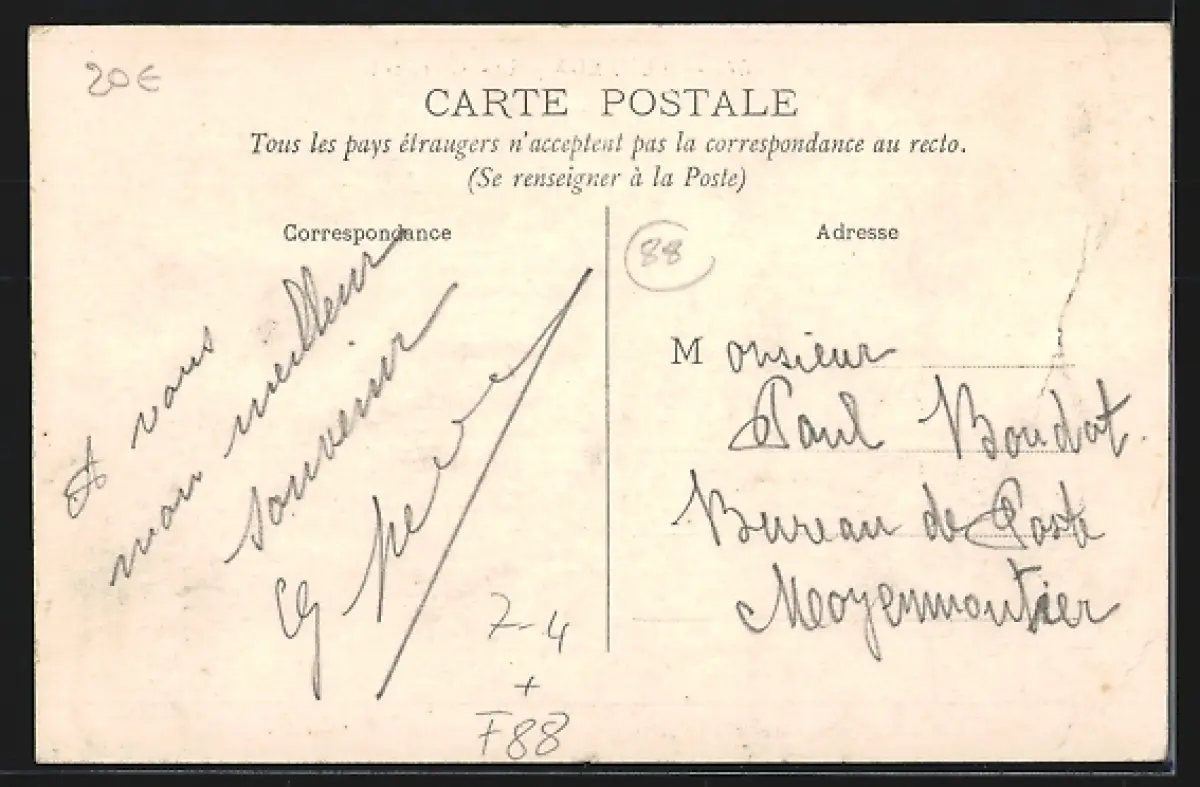 20€
CARTE POSTALE
Tous les pays étraugers n'acceptent pas la correspondance au recto.
(Se renseigner à la Poste)
Correspondance
A vous
mon meilleur
souvenir
7-4
+
F88
88
Adresse
Monsieur
Paul Boudat.
Bureau de Poste
Moyenmoutier